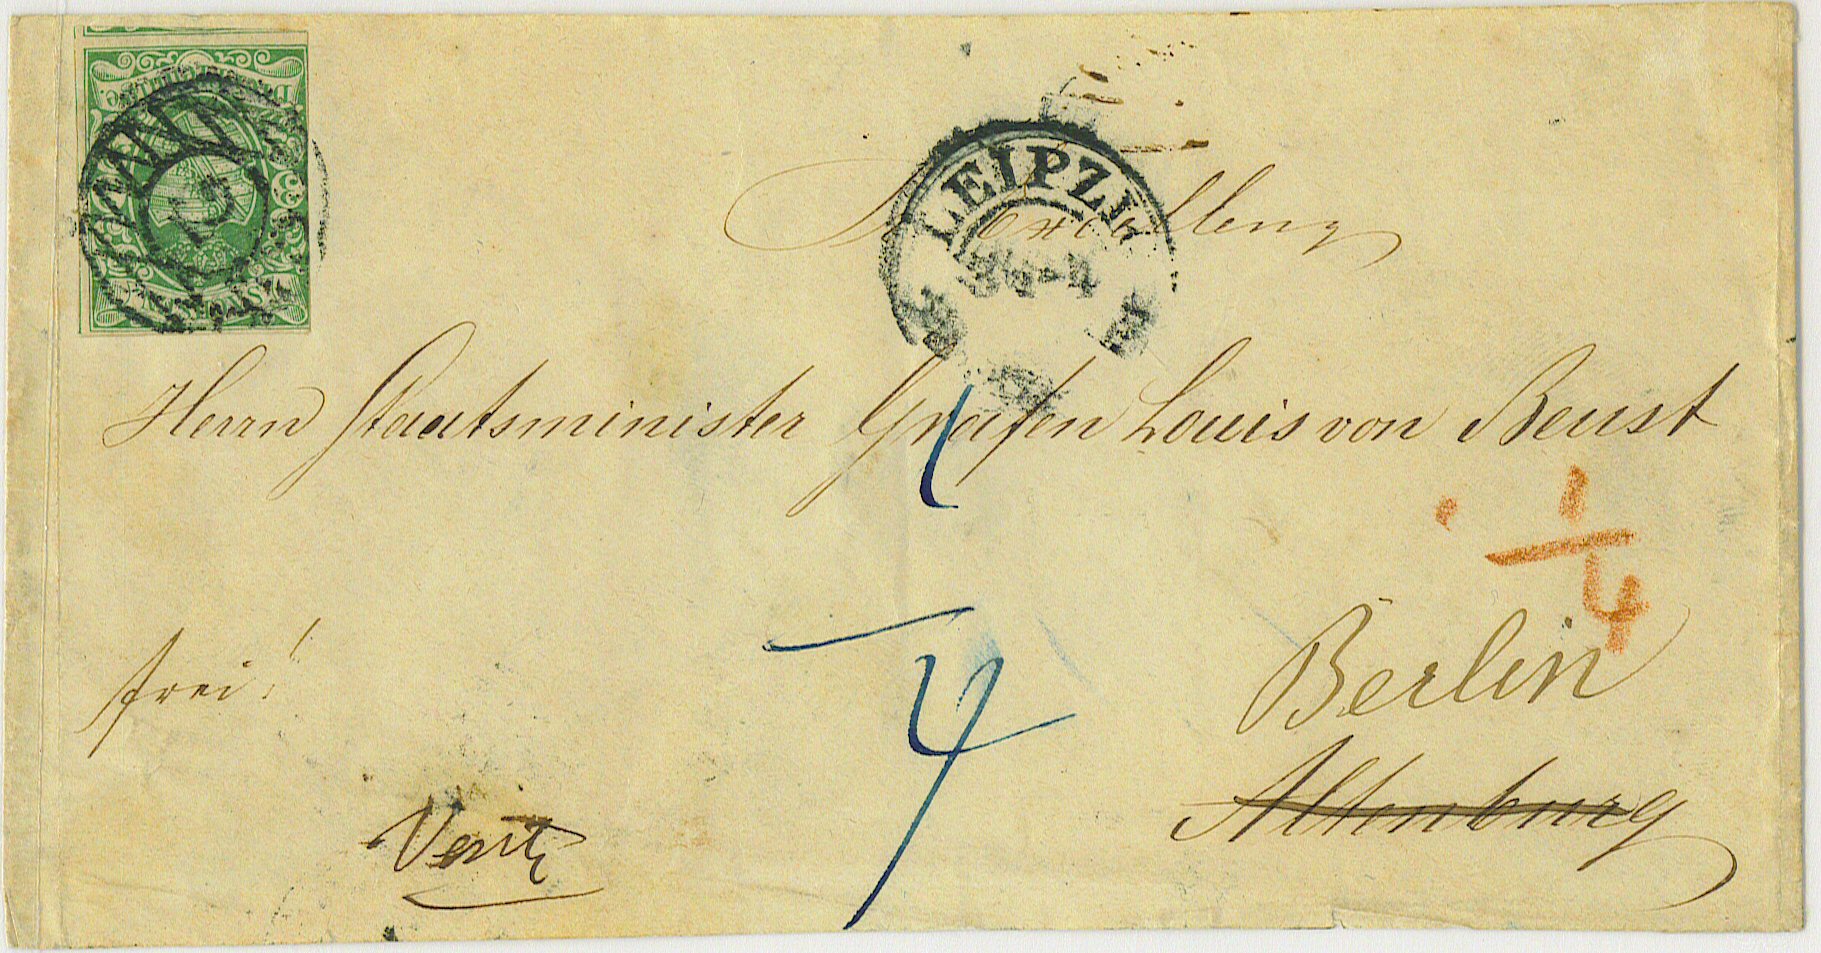 LEIPZIG
Sr Excellenz
Herrn Staatsminister Grafen Louis von Beust
1/4
frei!
Berlin
Altenburg
4
2